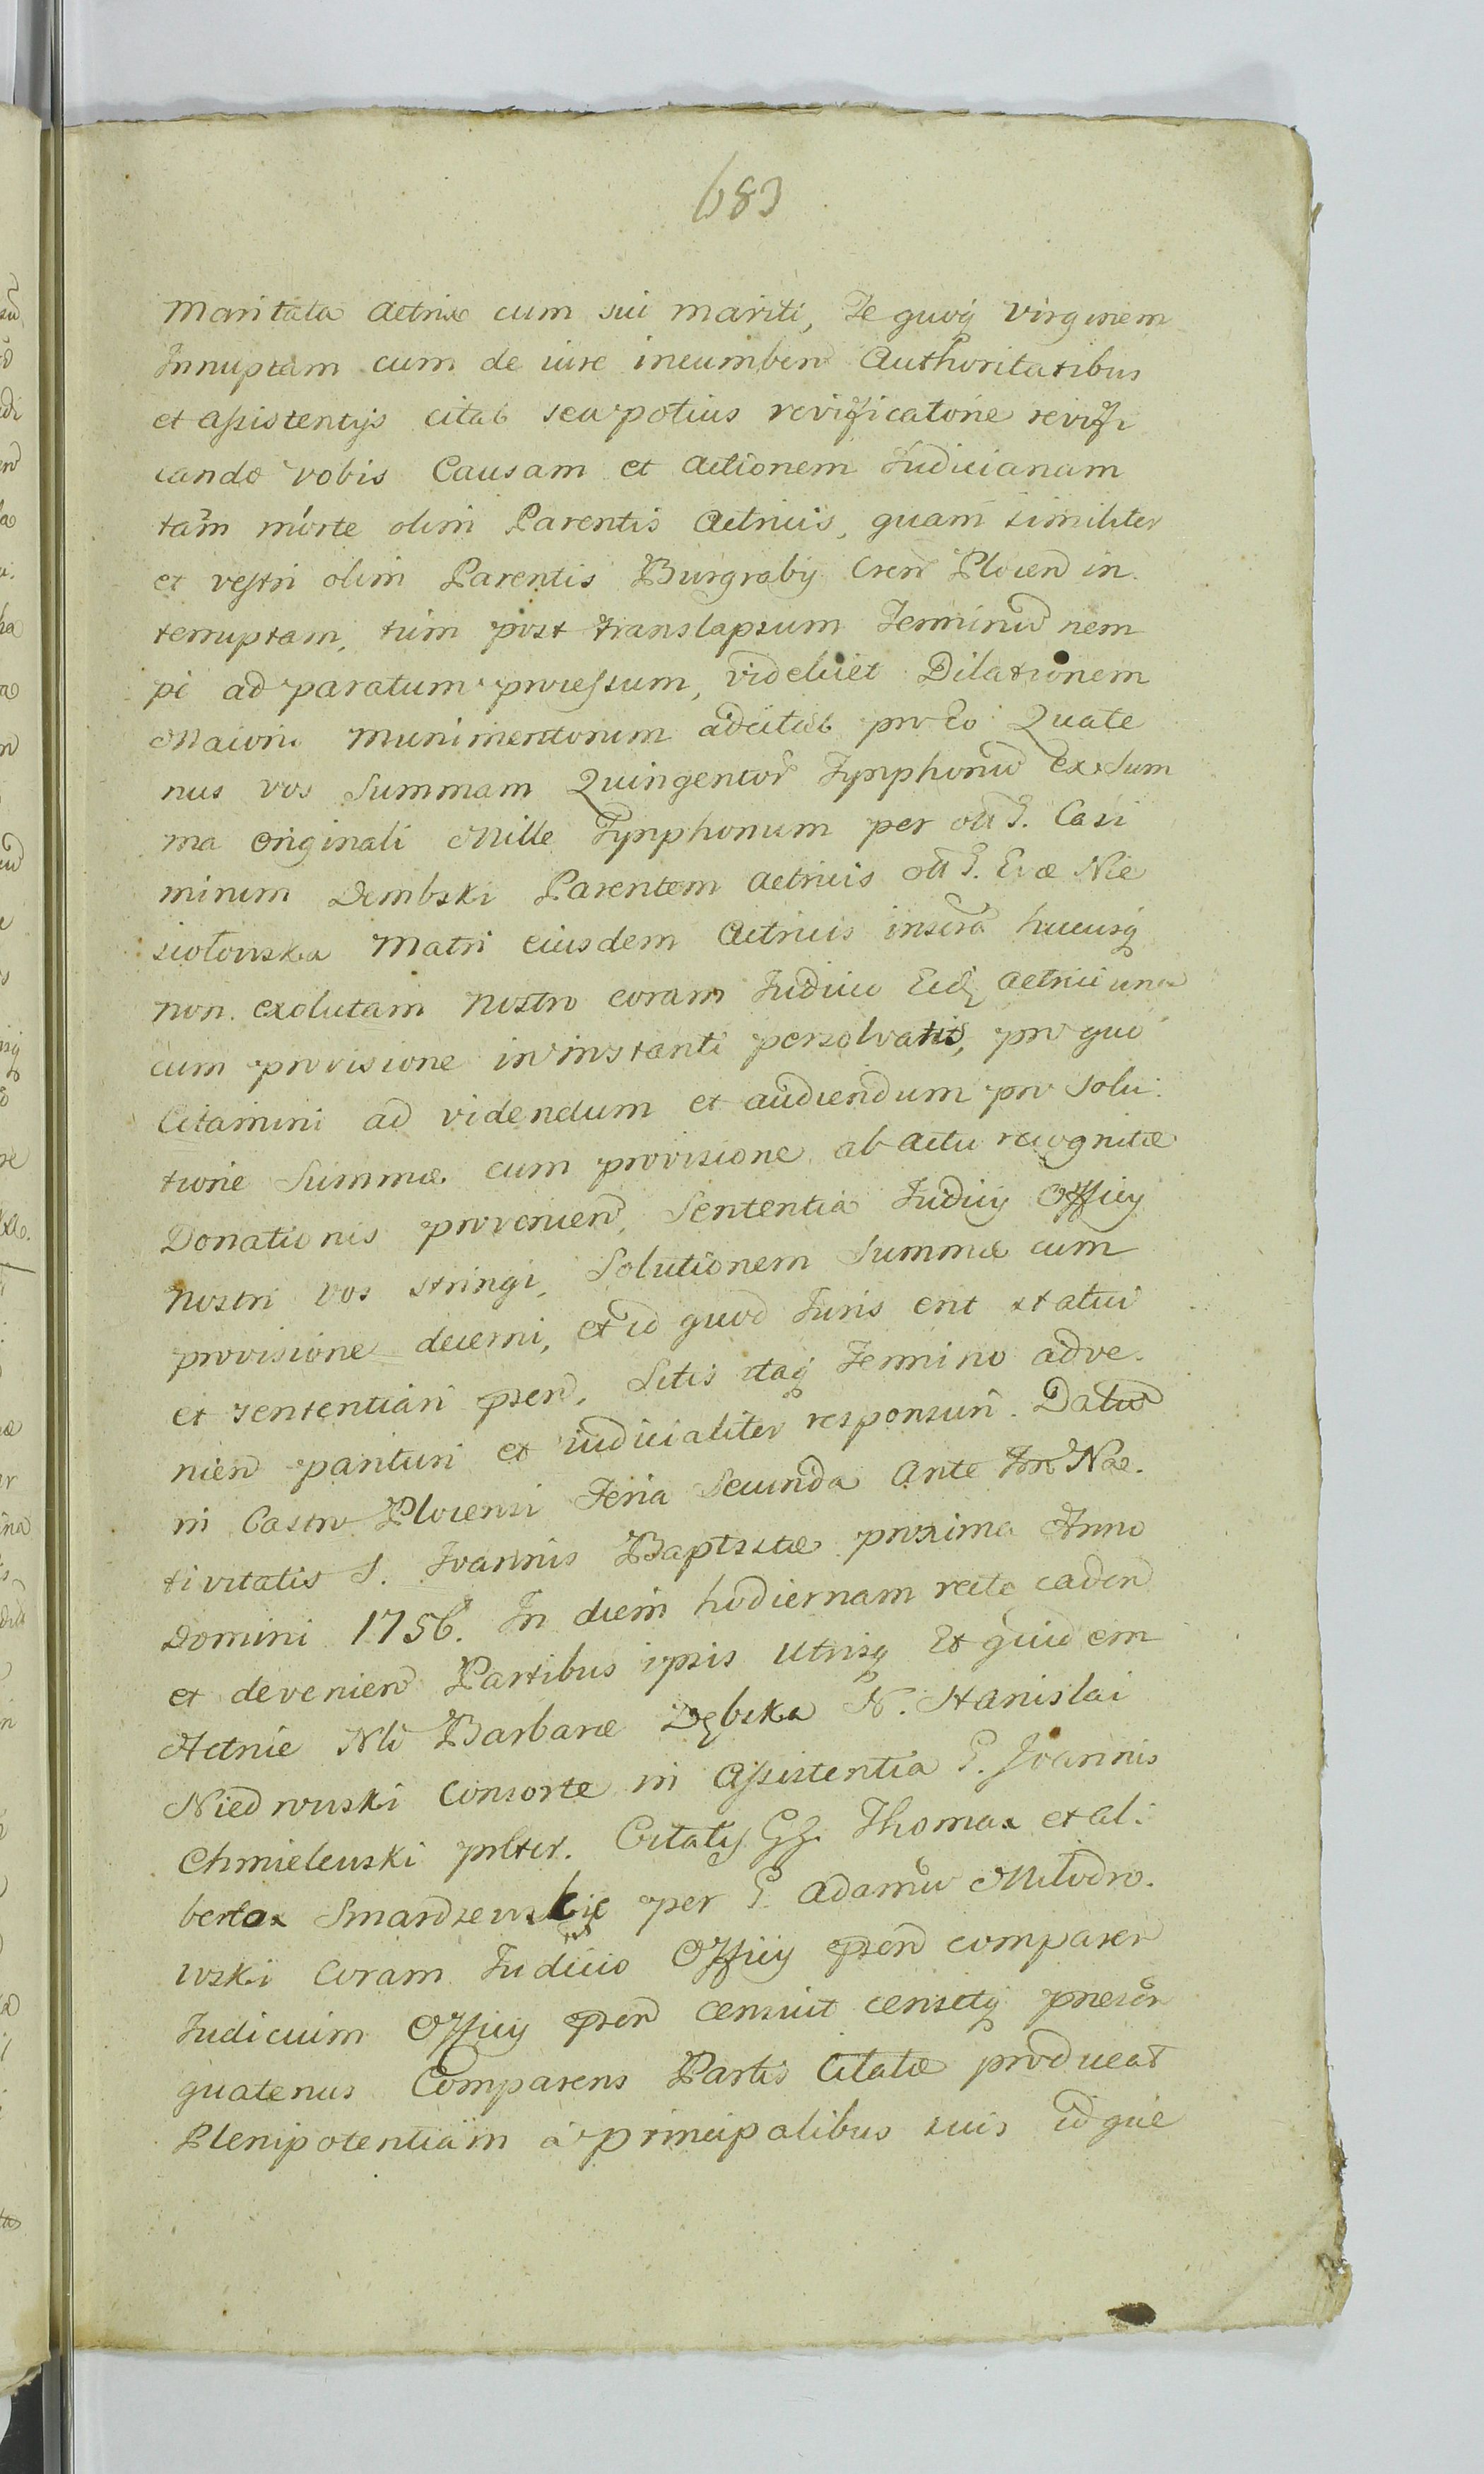 683
Maritata Actrix cum sui mariti, Te quoq Virginem
Innuptam cum de iure incumben Authoritatibus
et assistentijs citat seu potius revificatorie revifi
cando vobis Causam et Actionem Judiciariam
tam morte olim Parentis Actricis, quam similiter
et vestri olim Parentis Burgrabij Cren Plocen in
terruptam, tum post translapsum Terminu nem
pe ad paratum processum, videlicet Dilationem
Maiore Munimentorum adcitat pro Eo Quate
nus vos Summam Quingentor Tynphonu ex Sum
ma Originali Mille Tynphonum per olt G. Casi
mirum Dembski Parentem Actricis olt G. Evæ Nie
siołowska Matri eiusdem Actricis inscra hucusq
non exolutam nostro coram Judicio Eid Actrici una
cum provisione in instanti persolvatis, pro quo
Citamini ad videndum et audiendum pro solu:
tione Summæ cum provisione ab actu recognitæ
Donationis provenien, Sententia Judicij Officij
nostri vos stringi, Solutionem Summæ cum
provisione decerni, et id quod Juris erit statui
et sententiari psen. Sitis itaq Termino adve.
nien parituri et iudicialiter responsuri. Datu
in Castro Plocensi Feria Secunda Ante Na.
tivitatis S. Joannis Baptistæ proxima Anno
Domini 1756. In diem hodiernam recte caden
et devenien Partibus ipsis Utrisq Et quidem
Actrice Nli Barbaræ Dębska N. Stanislai
Niedrowski Consorte in Assistentia G. Joannis
Chmielewski plter. Citatis GG. Thoma et Al:
berto Smardzewskie per G. Adamu Miłodro.
wski Coram Judicio Officij psen comparen
Judicium Officij psen censuit censetq
quatenus Comparens Partis Citatæ producat
Plenipotentiam a principalibus suis idque